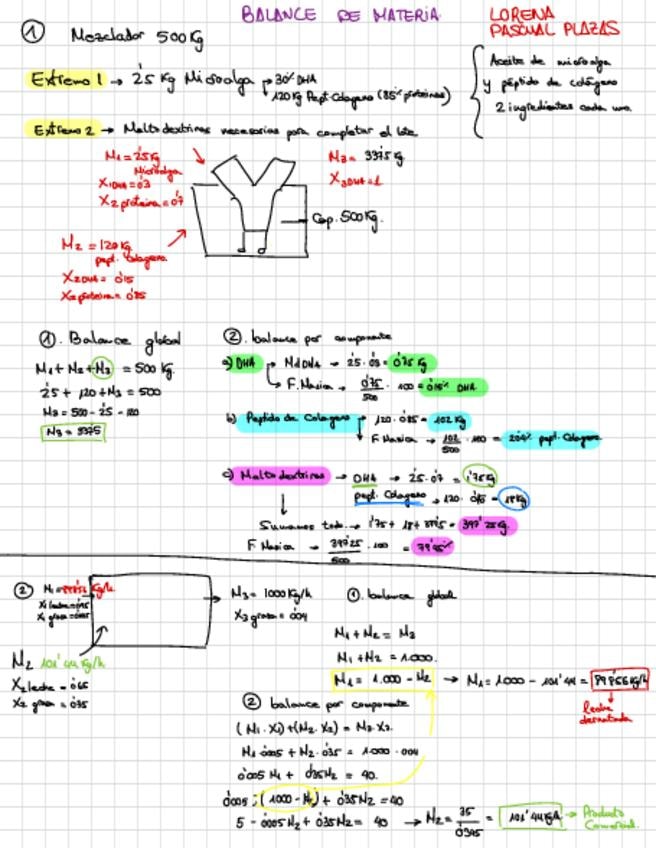 BALANCE DE MATERIA
LORENA
PASCUAL PLAZAS
① Mezclador 500Kg
Extremo 1 → 2'5 Kg Microalga → 30% DHA
120 Kg Pept. Colageno (85% proteinas)
Aceite de microalga
y péptido de colágeno
2 ingredientes cada uno.
Extremo 2 → Maltodextrinas necesarias para completar el lote
M1 = 2'5 Kg
Microalga
X1DHA = 0'3
X2 proteina = 0'7
M3 = 337'5 Kg
X3DHA = 1
Cap. 500 Kg.
M2 = 120 Kg
pept. Colageno
X2DHA = 0'15
X2 proteina = 0'85
①. Balance global
M1 + M2 + M3 = 500 Kg.
2'5 + 120 + M3 = 500
M3 = 500 - 2'5 - 120
M3 = 337'5
②. balance por componente
a) DHA → M1 DHA → 2'5 · 0'3 = 0'75 Kg
F. Masica → 0'75/500 · 100 = 0'15% DHA
b) Peptido de Colageno → 120 · 0'85 = 102 Kg
F Masica → 102/500 · 100 = 20'4% pept. Colageno
c) Maltodextrinas → DHA → 2'5 · 0'7 = 1'75 Kg
pept. Colageno → 120 · 0'15 = 18 Kg
Sumamos todo → 1'75 + 18 + 377'5 = 397'25 Kg.
F. Masica → 397'25/500 · 100 = 79'45%
② M1 = Kg/h
X1 grasa = 0'005
M3 = 1000 Kg/h
X3 grasa = 0'04
M2 101'44 Kg/h
X2 leche = 0'65
X2 grasa = 0'35
①. balance global
M1 + M2 = M3
M1 + M2 = 1.000.
M1 = 1.000 - M2 → M1 = 1.000 - 101'44 = 898'56 Kg/h
leche
desnatada
② balance por componente
(M1 · X1) + (M2 · X2) = M3 · X3.
M1 · 0'005 + M2 · 0'35 = 1.000 · 0'04
0'005 M1 + 0'35 M2 = 40.
0'005 · (1000 - M2) + 0'35 M2 = 40
5 - 0'005 M2 + 0'35 M2 = 40 → M2 = 35/0'345 = 101'44 Kg/h → Producto
Comercial.